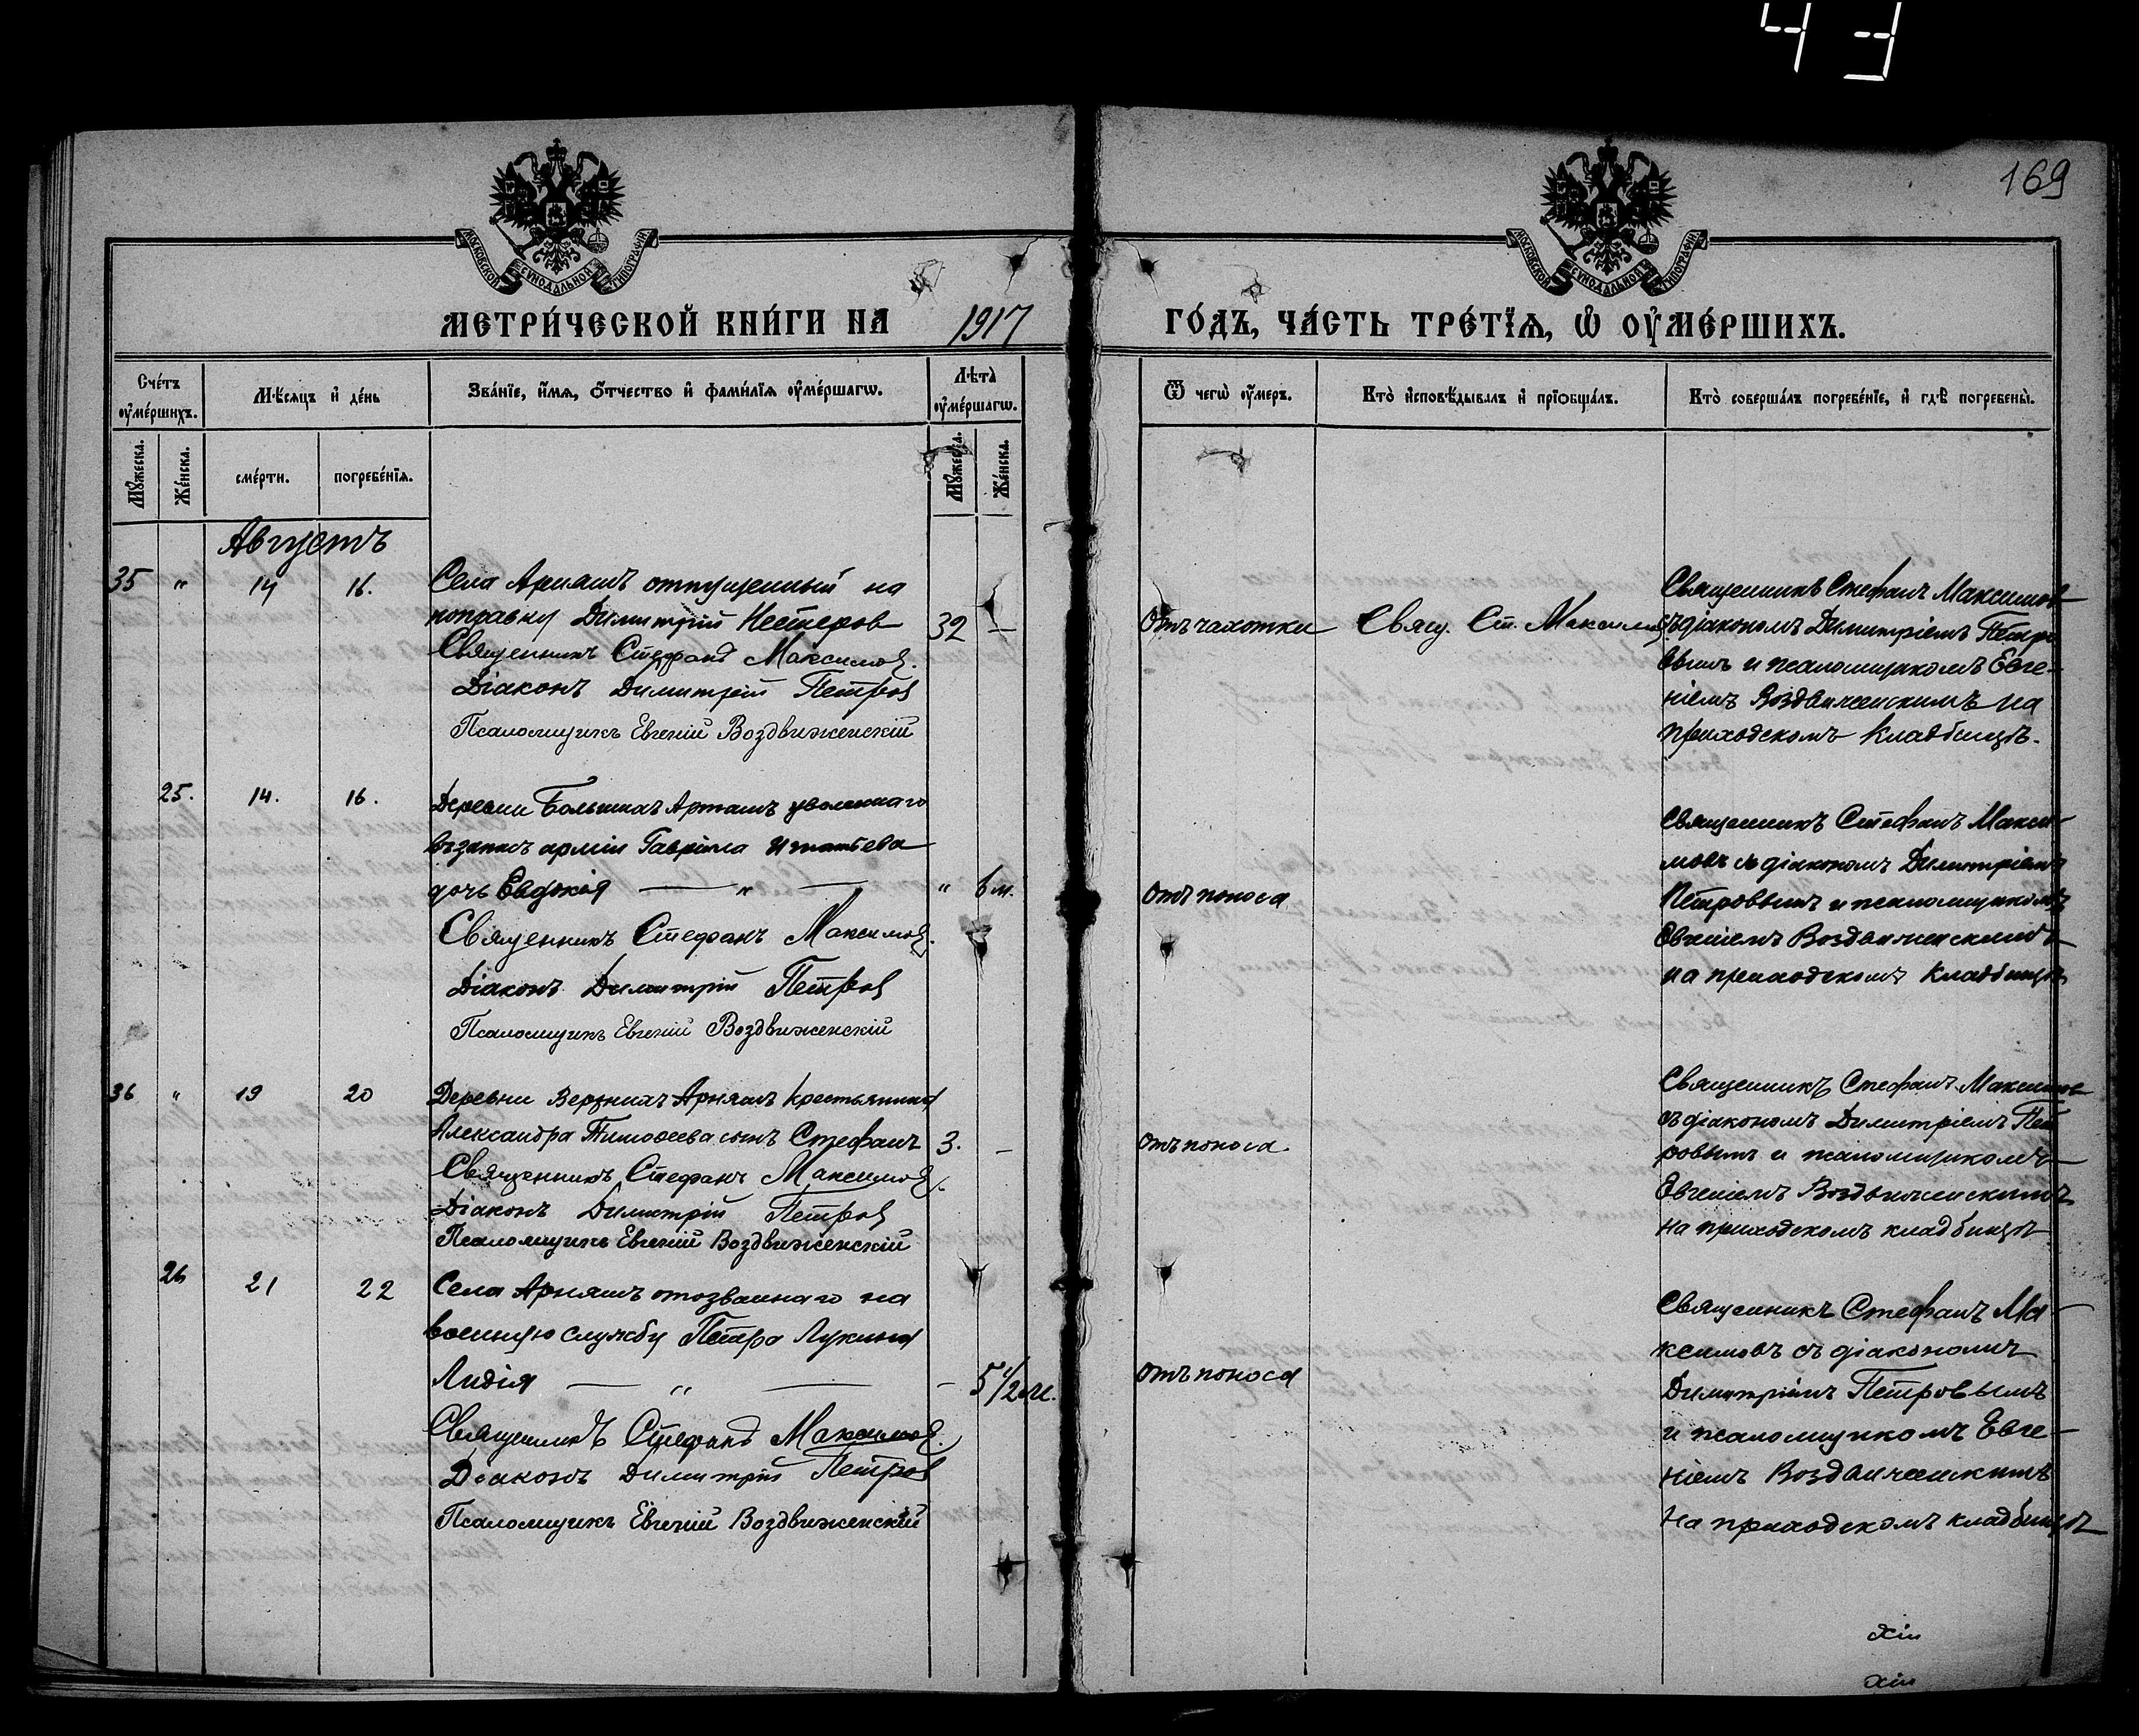 43
169
МОСКОВСКОЙ СѴНОДАЛЬНОЙ ТИПОГРАФІИ.
МОСКОВСКОЙ СѴНОДАЛЬНОЙ ТИПОГРАФІИ.
МЕТРИ́ЧЕСКОЙ КНИ́ГИ НА 1917 ГО́ДЪ, ЧА́СТЬ ТРЕ́ТЇѦ, Ѡ҆ ОУ҆МЕ́РШИХЪ.
Сче́тъ оу҆ме́ршихъ.
Мѣ́сѧцъ и҆ де́нь
Зва́нїе, и҆́мѧ, ѻ҆́тчество и҆ фами́лїѧ оу҆ме́ршагѡ.
Лѣ̀та оу҆ме́ршагѡ.
Ѿ чегѡ̀ оу҆́меръ.
Кто̀ и҆сповѣ́дывалъ и҆ прїѡбща́лъ.
Кто̀ соверша́лъ погребе́нїе, и҆ гдѣ̀ погребены̀.
Мꙋ́жеска.
Же́нска.
сме́рти.
погребе́нїѧ.
Мꙋ́жеска.
Же́нска.
Августъ
35 " 14 16.
Села Арняшъ отпущенный на
поправку Димитрій Нестеров
32 —
Священникъ Стефанъ Максимов.
Діаконъ Димитрій Петров
Псаломщикъ Евгеній Воздвиженскій
Отъ чахотки
Свящ. Ст. Максимов
Священникъ Стефанъ Максимов
съ діакономъ Димитріемъ Петро
вымъ и псаломщикомъ Евге-
ніемъ Воздвиженскимъ на
приходскомъ кладбищѣ.
25. 14. 16.
Деревни Большихъ уволеннаго
въ запасъ арміи Гавріила Игнатьева
дочь Евдокія — " —
" 6 м.
Священникъ Стефанъ Максимов.
Діаконъ Димитрій Петров
Псаломщикъ Евгеній Воздвиженскій
отъ поноса
Священникъ Стефанъ Макси-
мовъ съ діакономъ Димитріемъ
Петровымъ и псаломщикомъ
Евгеніемъ Воздвиженскимъ
на приходскомъ кладбищѣ
36 " 19 20
Деревни Верхнихъ Арняшъ крестьянина
Александра Тимоѳеева сынъ Стефанъ
3. —
Священникъ Стефанъ Максимов.
Діаконъ Димитрій Петров
Псаломщикъ Евгеній Воздвиженскій
отъ поноса.
Священникъ Стефанъ Максимов
съ діакономъ Димитріемъ Пет
ровымъ и псаломщикомъ
Евгеніемъ Воздвиженскимъ
на приходскомъ кладбищѣ
26 21 22
Села Арняшъ отозваннаго на
военную службу Петра Лукина
Лидія — " —
— 5 1/2 м.
Священникъ Стефанъ Максимов.
Діаконъ Димитрій Петров
Псаломщикъ Евгеній Воздвиженскій
отъ поноса
Священникъ Стефанъ Ма-
ксимовъ съ діакономъ
Димитріемъ Петровымъ
и псаломщикомъ Евге-
ніемъ Воздвиженскимъ
на приходскомъ кладбищѣ